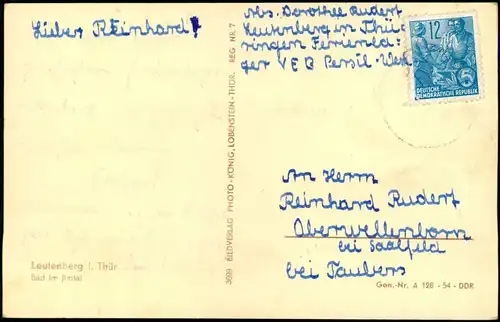 Lieber Reinhard!
Abs. Dorothee Rudorf
Leutenberg in Thü-
ringen Ferienla-
ger VEB Persil-Werk
12
DEUTSCHE
DEMOKRATISCHE REPUBLIK
3699 BILDVERLAG PHOTO-KÖNIG, LOBENSTEIN-THÜR. REG NR. 7
An Herrn
Reinhard Rudorf
Oberwellenborn
bei Saalfeld
bei Taubers
Leutenberg i. Thür
Bad im Ilmtal
Gen.-Nr. A 128 - 54 - DDR